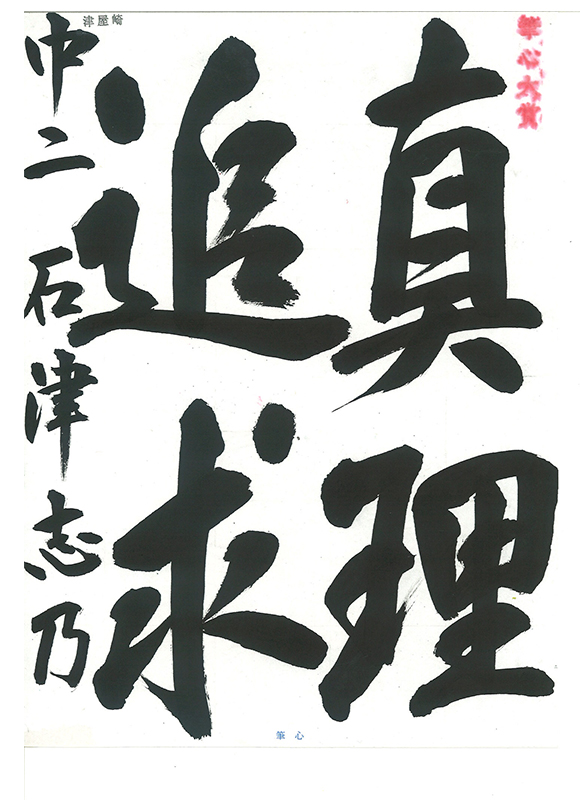 筆心大賞
真理
追求
津屋崎
中二 石津志乃
筆心